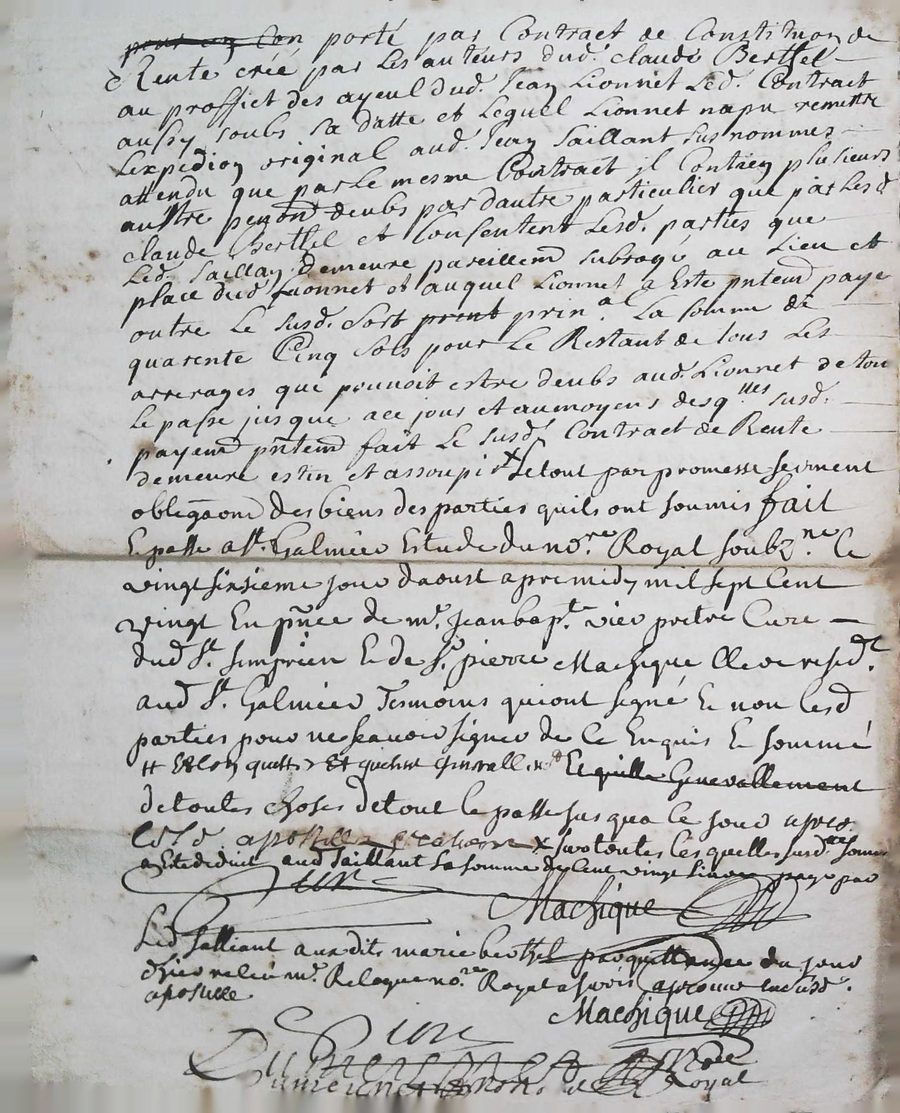 porté par Contract de Constituon de
Rente créé par Les auteurs dud. claude Berthel
au proffict des ayeul dud. Jean Lionnet Led. Contract
aussy soubs sa datte et Lequel Lionnet napu remettre
Lexpedion original aud. Jean Saillant sus nommes
attendu que par Le mesme Contract jl Contien plusieurs
auttre deubs par dautre particulier que par Led
claude Berthel et Consentent Lesd. parties que
Led. Saillan demeure pareillemt subrogé au Lieu et
place dud Lionnet et auquel Lionnet a Este pntemt paye
outre Le susd. sort prinal La somme de
quarente Cinq sols pour Le Restant de tous Les
arrerages que pouvoit estre deubs aud. Lionnet de tou
Le passe jusque a ce jour et au moyens des susd.
payemt pntemt fait Le susd. Contract de Rente
demeure estin et assoupi x Le tout par promesse serment
obligaon des biens des parties quils ont soumis fait
E passe a St. Galmier Estude du nore Royal soubzne Ce
vingt sixsieme jour daoust apremidy mil sept Cent
vingt En pnce de mr. jean bapte. vier pretre Cure
dud St. simprien E de sr. pierre Machique Clerc residt
aud St. Galmier Tesmoins qui ont signé E non lesd
parties pour ne scavoir signer de Ce Enquis E sommé
Et quitte Generallement
de toutes choses de tout le passe jusqua Ce jour apres
x sur toutes Les quelles susd. somes
a Este deduit aud Saillant La somme de Cent vingt Livres paye par
Machique
Led Salliant aux dits marie berthel par quittance du jour
dhier relié mr. nore Royal aprouve La susd.
apostille
Machique
Royal